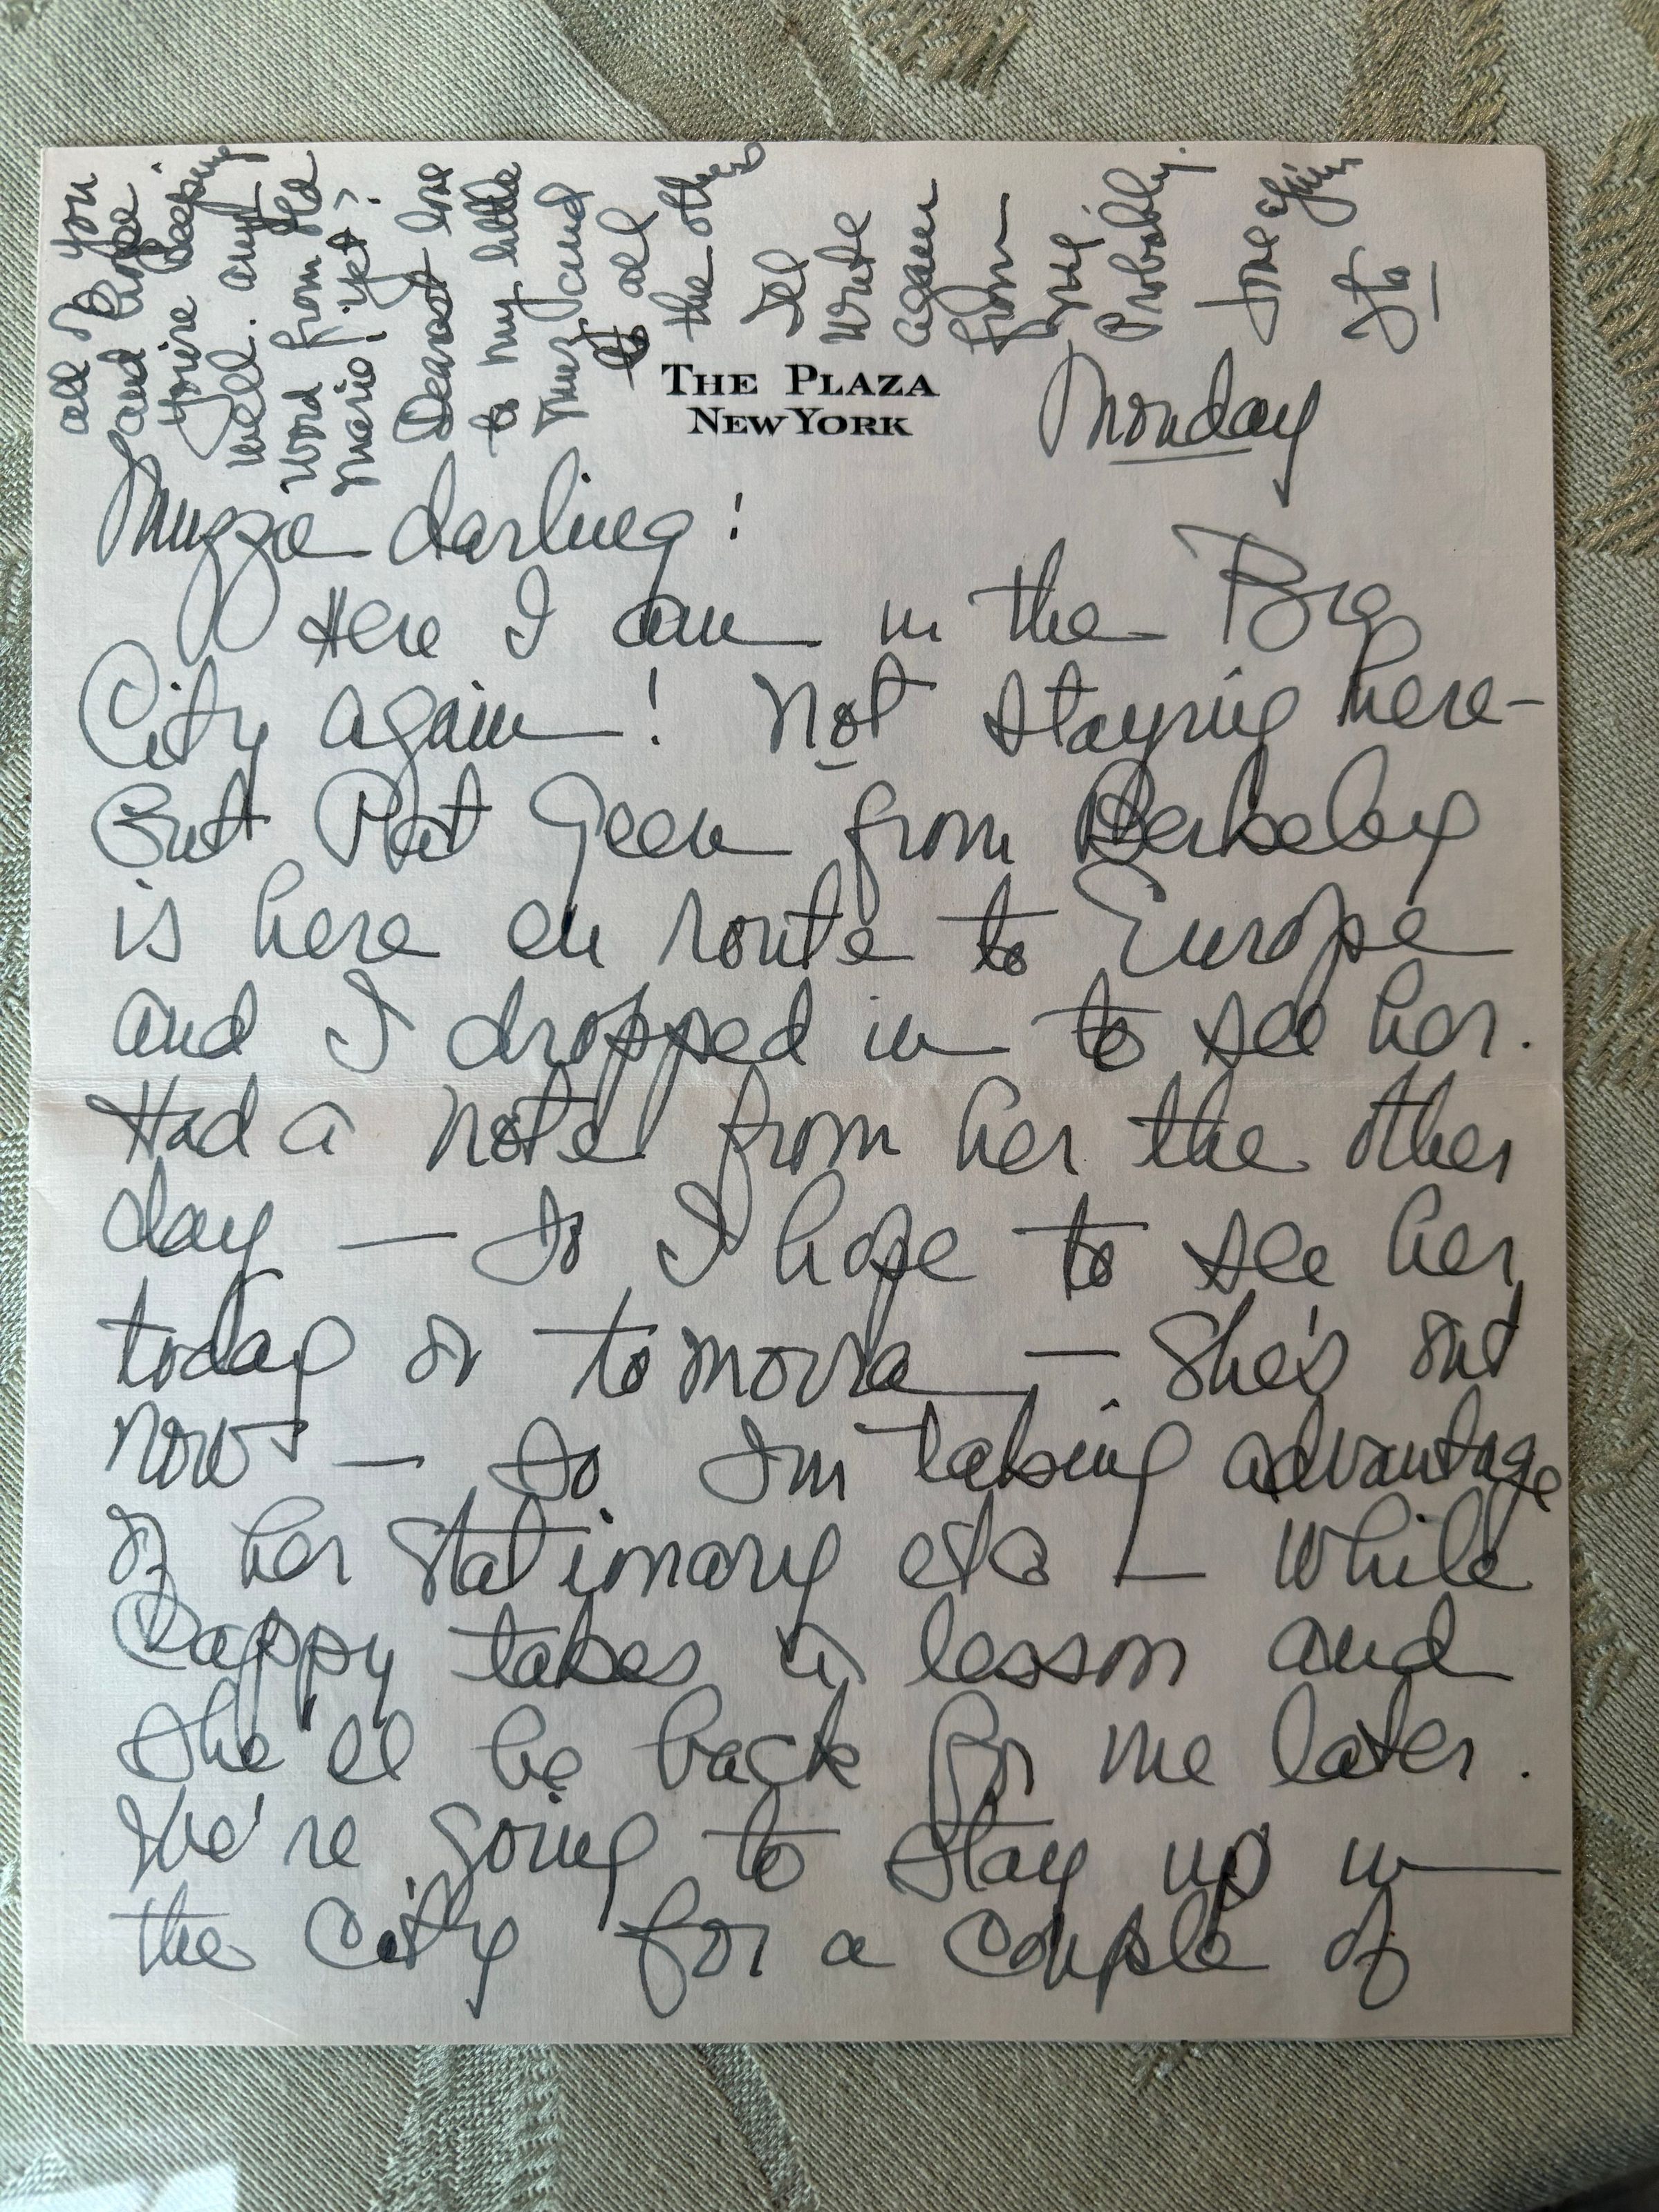 THE PLAZA
NEW YORK
Monday
Muzzie darling!
Here I am in the Big
City again! Not staying here-
But Pat Geen from Berkeley
is here en route to Europe
and I dropped in to see her.
Had a note from her the other
day — so I hope to see her
today or tomorra — She's out
now — so I'm taking advantage
of her stationary etc — while
Dappy takes a lesson and
she'll be back for me later.
We're going to stay up in
the city for a couple of
all of you
and hope
you're keeping
well. any
word from
Marie yet?
Dearest love
to my little
Muz and
to all
the others
I'll
write
again
from
Probably.